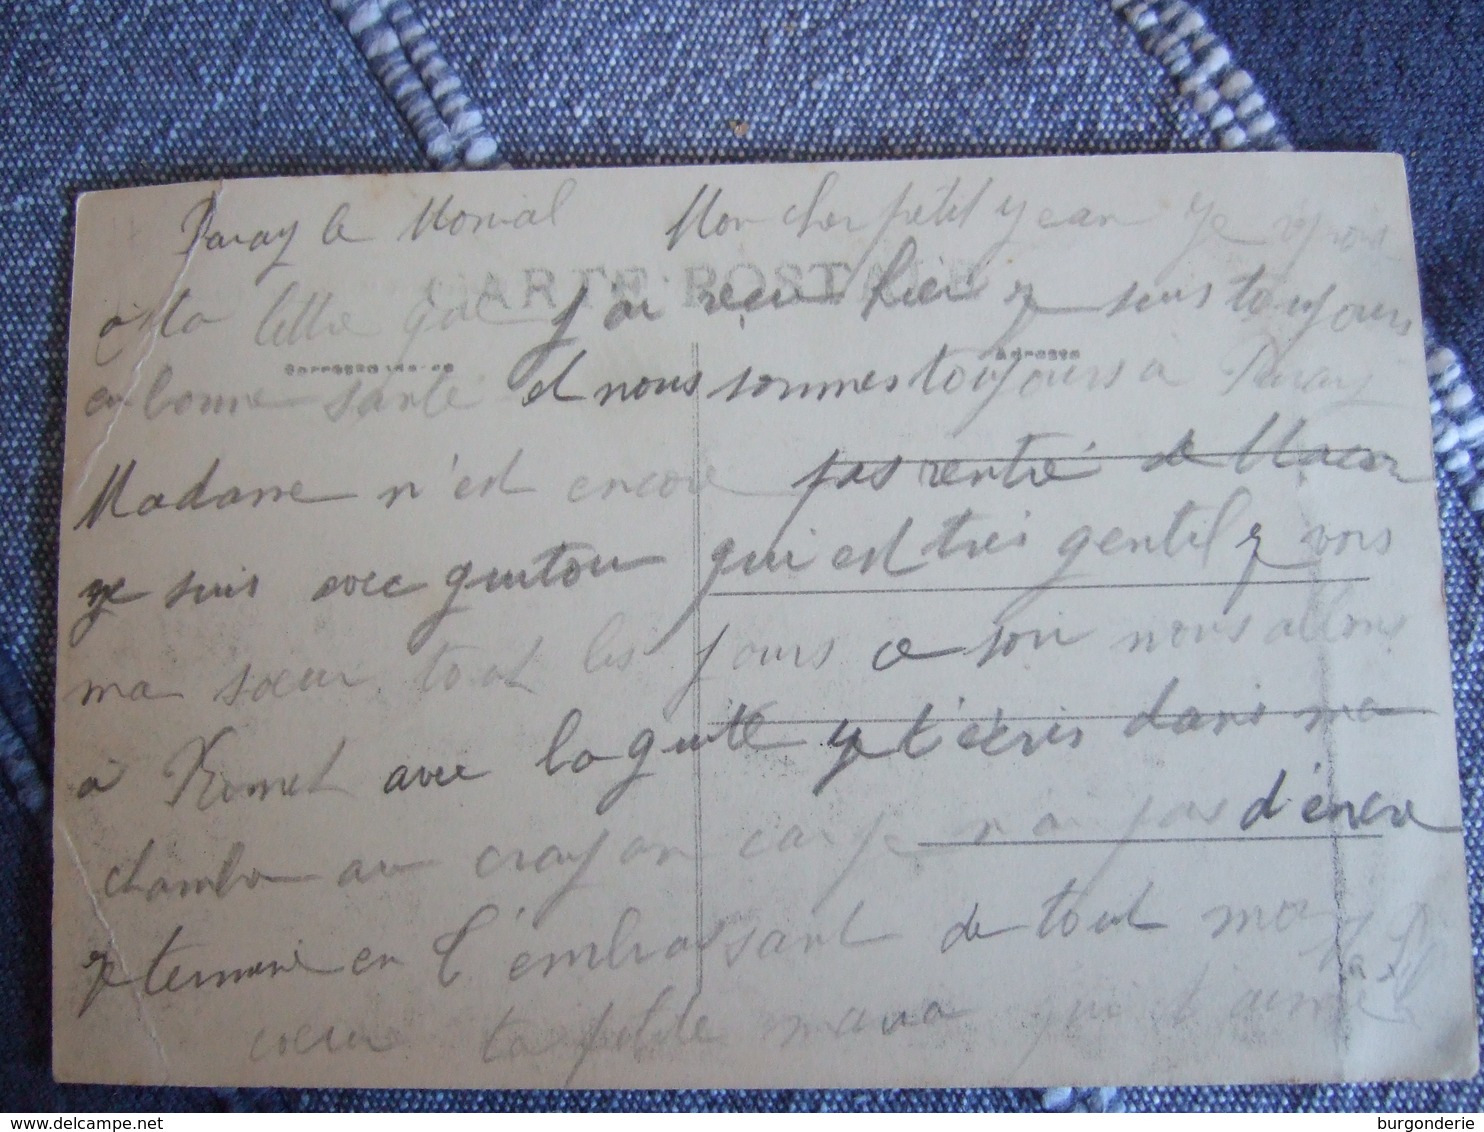 Paray le Monial Mon cher petit Jean Je répons
CARTE POSTALE
à ta lettre que j'ai reçu hier je suis toujours
Correspondance Adresse
en bonne santé et nous sommes toujours à Paray
Madame n'est encore pas rentré de Macon
je suis avec guiton qui est très gentil je vois
ma sœur tout les jours ce soir nous allons
à Romet avec la guite je t'écris dans ma
chambre au crayon car je n'ai pas d'encre
je termine en t'embrassant de tout mon
coeur ta petite mama qui t'aime
burgonderie